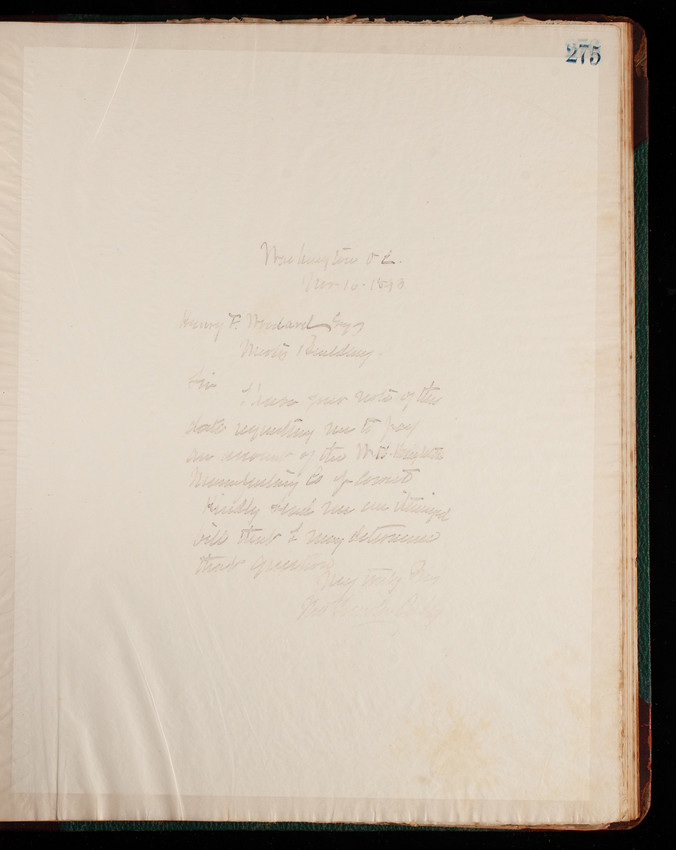 275
Washington D.C.
Nov 10 - 1893
Henry F. Woodard Esq
Building.
Sir
I have your note of this
date requesting me to pay
an account of the W. B.
Manufacturing Co
Kindly send me an itemized
bill that I may determine
that question
Very truly